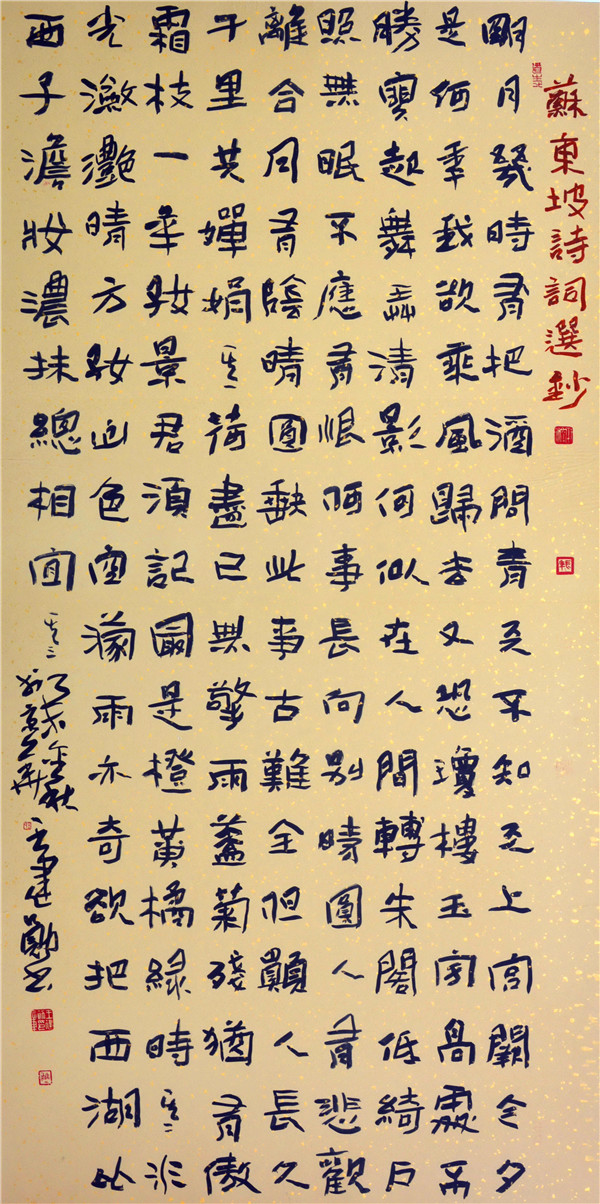 蘇東坡詩詞選鈔
朙月幾時有把酒問青天不知天上宮闕今夕
是何年我欲乘風歸去又恐瓊樓玉宇高處不
勝寒起舞弄清影何似在人間轉朱閣低綺戶
照無眠不應有恨何事長向別時圓人有悲歡
離合月有陰晴圓缺此事古難全但願人長久
千里共嬋娟其一荷盡已無擎雨蓋菊殘猶有傲
霜枝一年好景君須記最是橙黃橘綠時其二水
光瀲灧晴方好山色空濛雨亦奇欲把西湖比
西子澹妝濃抹總相宜其三
金秋
京華